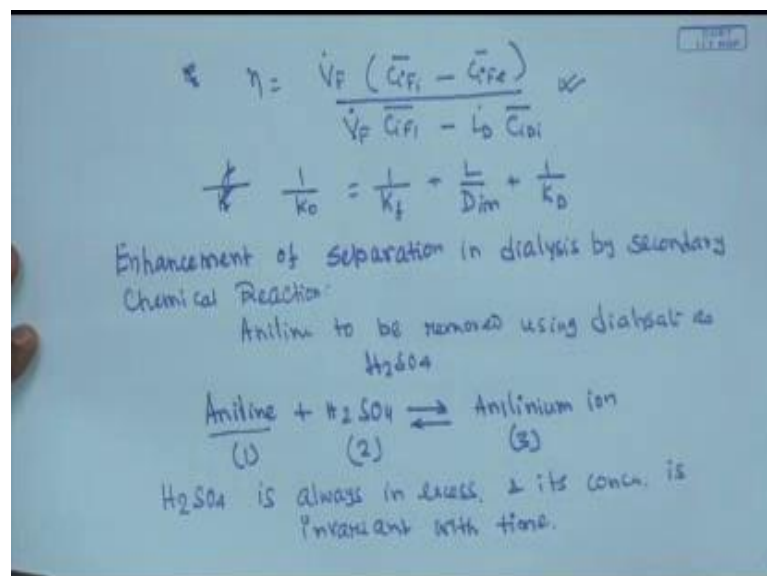 η = V̇F ( C̄iFi − C̄iFe )
V̇F C̄iFi − L̇D C̄iDi
1/K0 = 1/Kf + L/Dim + 1/KD
Enhancement of separation in dialysis by secondary
Chemical Reaction:
Aniline to be removed using dialysate as
H2SO4
Aniline + H2SO4 ⇌ Anilinium ion
(1) (2) (3)
H2SO4 is always in excess, & its concn. is
invariant with time.